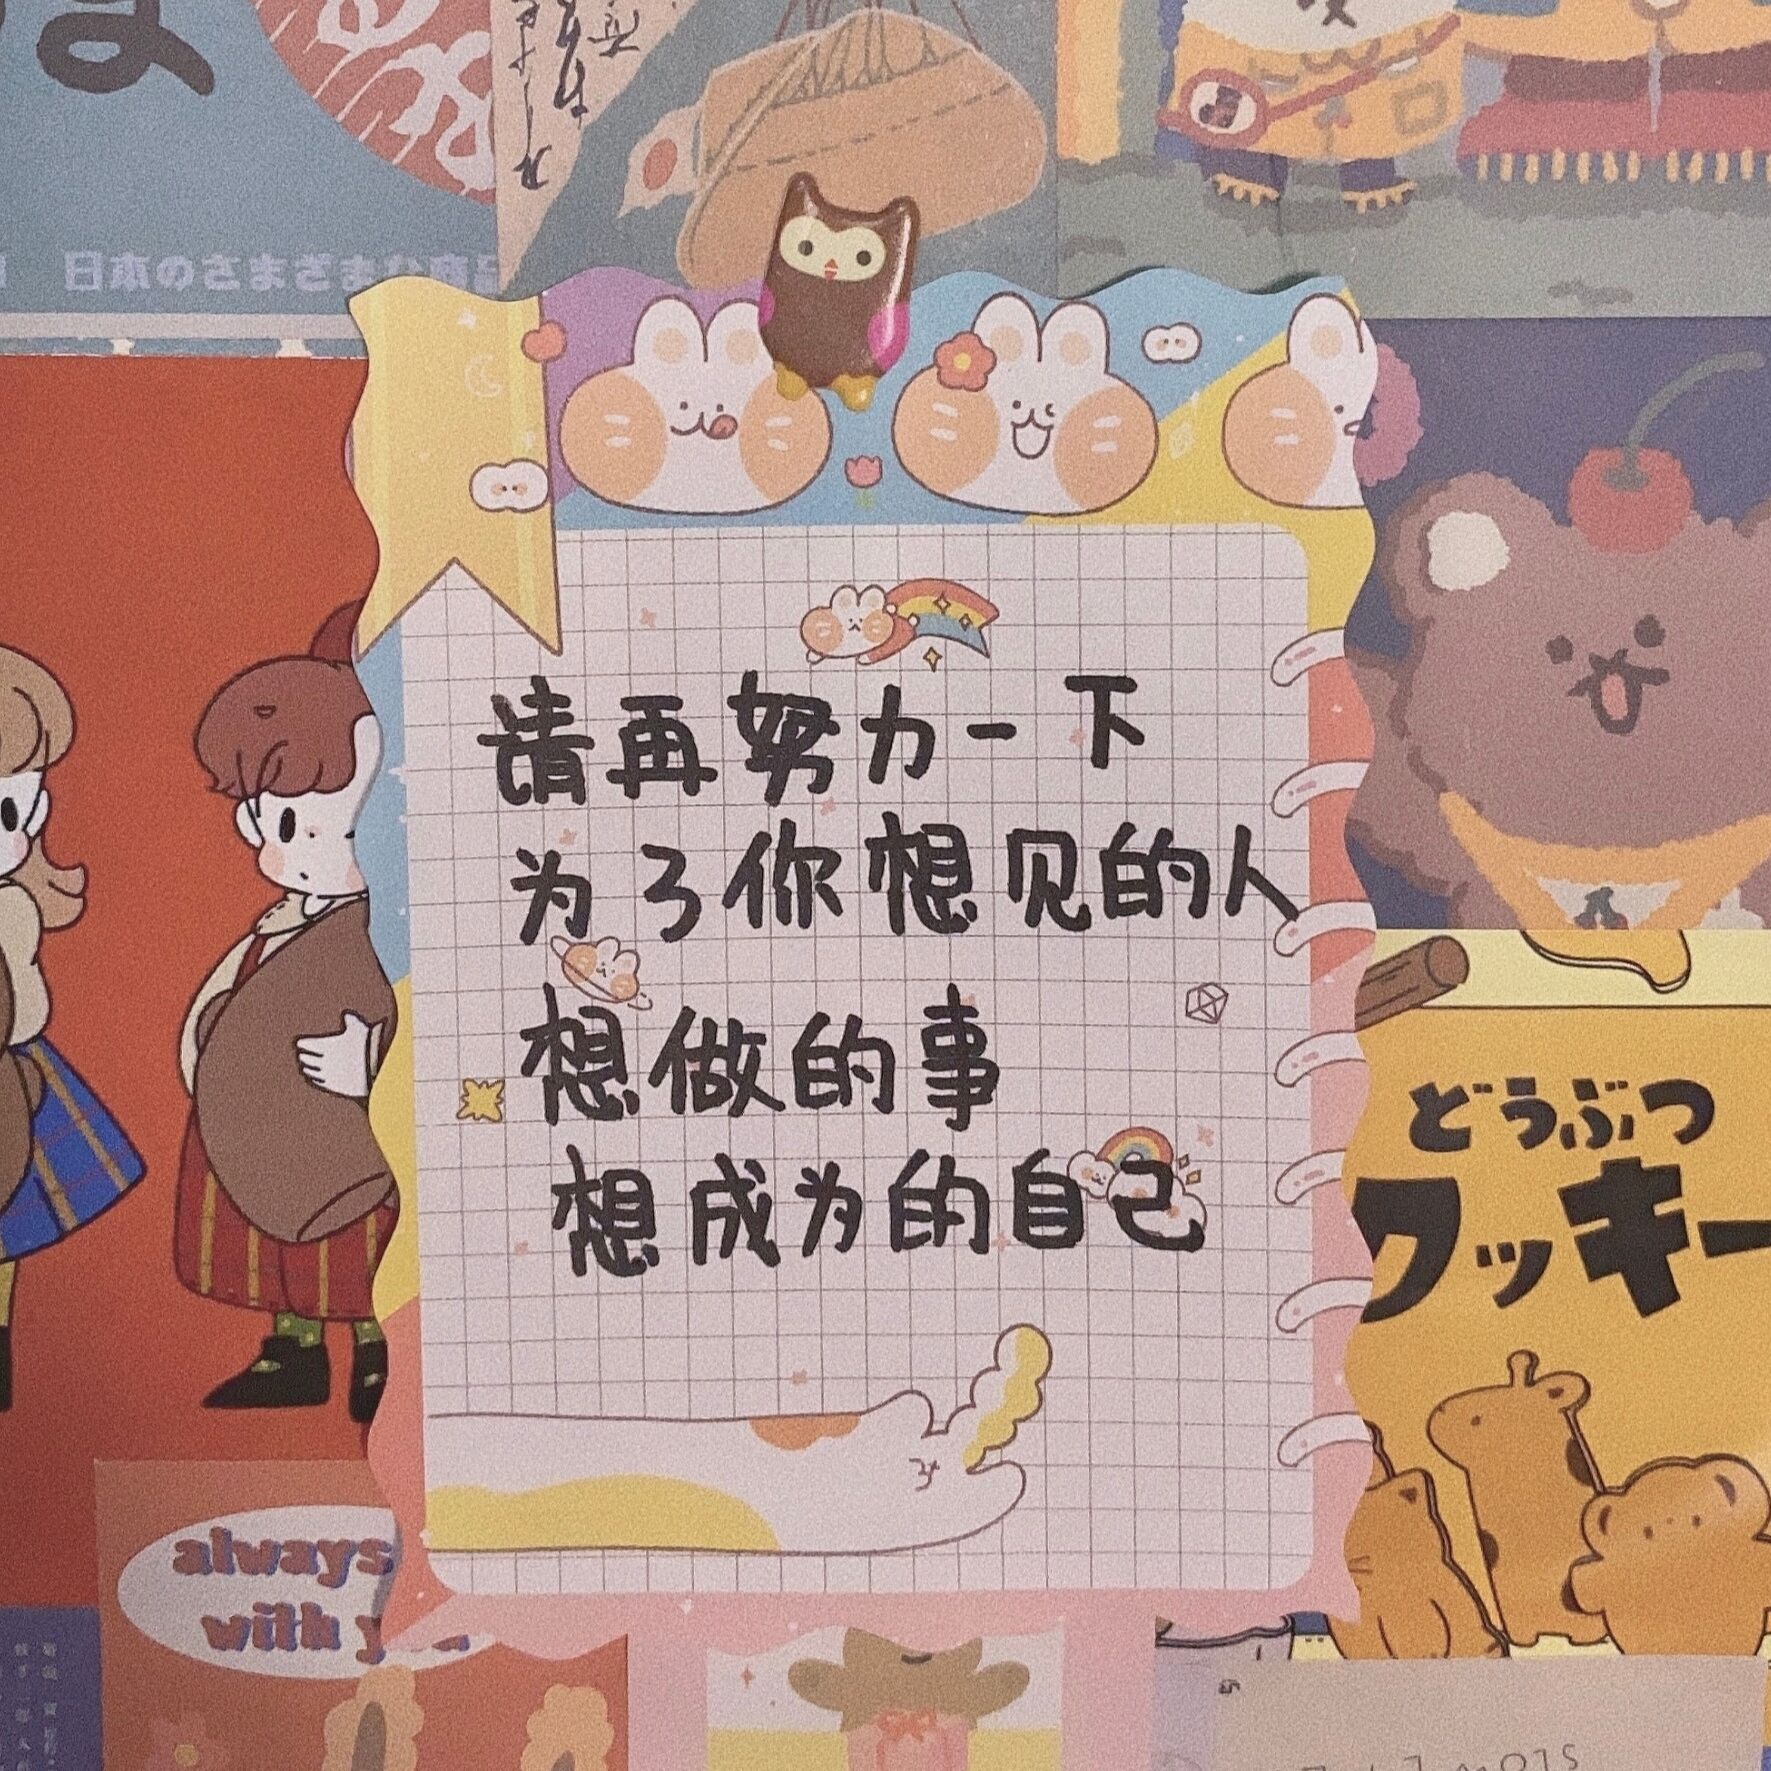 日本のさまざまな商品
请再努力一下
为了你想见的人
想做的事
想成为的自己
どうぶつ
クッキー
always
with you